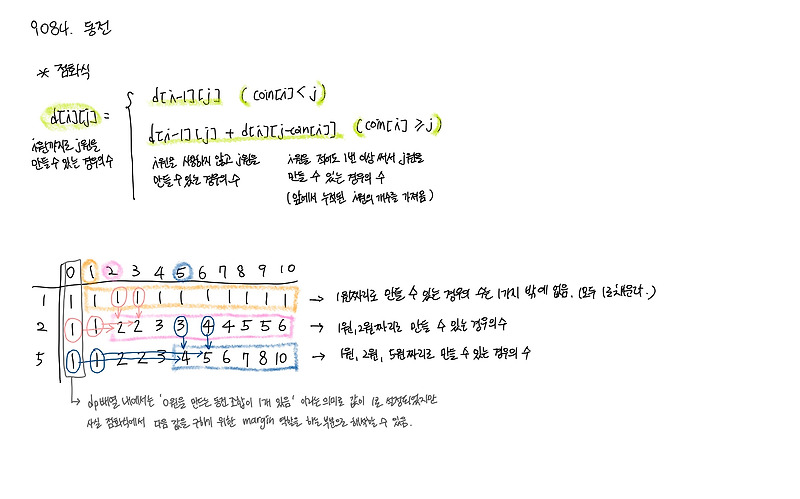 9084. 동전
* 점화식
d[i][j] =
d[i-1][j] (coin[i] < j)
d[i-1][j] + d[i][j-coin[i]] (coin[i] ≥ j)
i원까지로 j원을
만들 수 있는 경우의 수
i원은 사용하지 않고 j원을
만들 수 있는 경우의 수
i원을 적어도 1번 이상 써서 j원을
만들 수 있는 경우의 수
(앞에서 누적된 i원의 개수를 가져옴)
0 1 2 3 4 5 6 7 8 9 10
1 1 1 1 1 1 1 1 1 1 1 1 → 1원짜리로 만들 수 있는 경우의 수는 1가지 밖에 없음. (모두 1로 채운다.)
2 1 1 2 2 3 3 4 4 5 5 6 → 1원, 2원짜리로 만들 수 있는 경우의 수
5 1 1 2 2 3 4 5 6 7 8 10 → 1원, 2원, 5원짜리로 만들 수 있는 경우의 수
→ dp배열 내에서는 '0원을 만드는 동전 조합이 1개 있음' 이라는 의미로 값이 1로 설정되었지만
사실 점화식에서 다음 값을 구하기 위한 margin 역할을 하는 부분으로 해석할 수 있음.